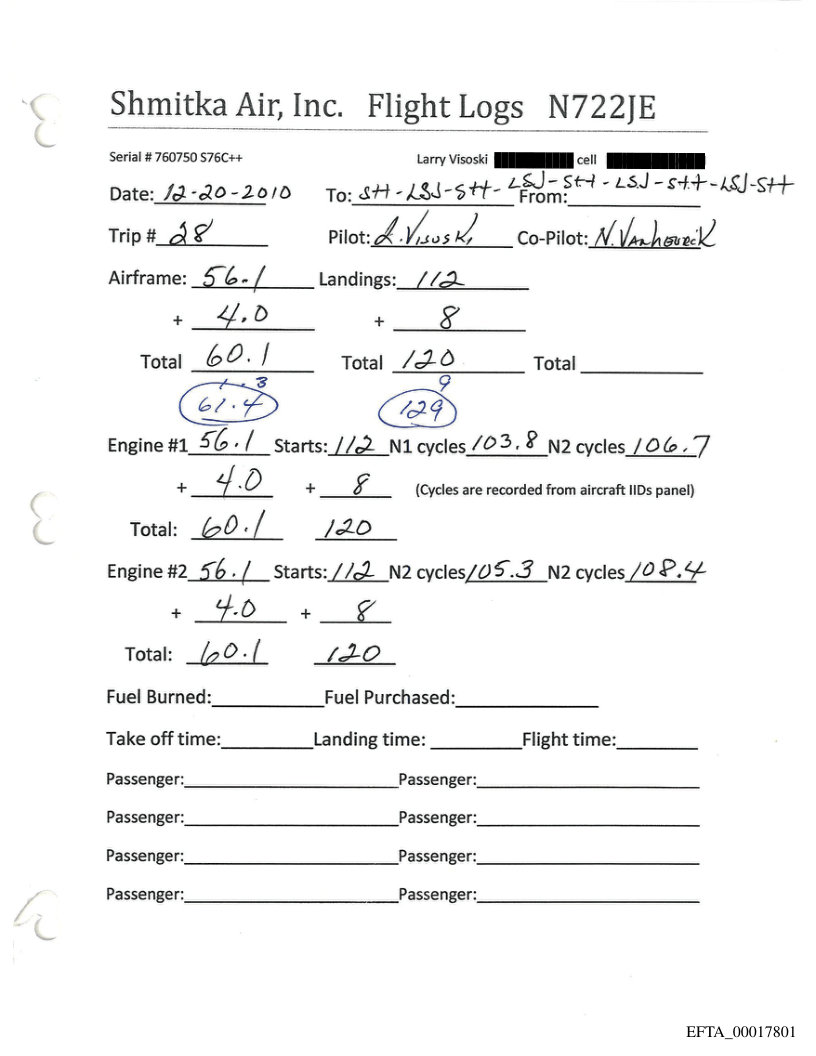 Shmitka Air, Inc. Flight Logs N722JE
Serial # 760750 S76C++ Larry Visoski cell
Date: 12-20-2010 To: STT-LSJ-STT-LSJ-STT-LSJ-STT-LSJ-STT From:
Trip # 28 Pilot: L. Visoski Co-Pilot: N. Vanhourck
Airframe: 56.1 Landings: 112
+ 4.0 + 8
Total 60.1 Total 120 Total
1.3 9
61.4 129
Engine #1 56.1 Starts: 112 N1 cycles 103.8 N2 cycles 106.7
+ 4.0 + 8 (Cycles are recorded from aircraft IIDs panel)
Total: 60.1 120
Engine #2 56.1 Starts: 112 N2 cycles 105.3 N2 cycles 108.4
+ 4.0 + 8
Total: 60.1 120
Fuel Burned: Fuel Purchased:
Take off time: Landing time: Flight time:
Passenger: Passenger:
Passenger: Passenger:
Passenger: Passenger:
Passenger: Passenger:
EFTA_00017801